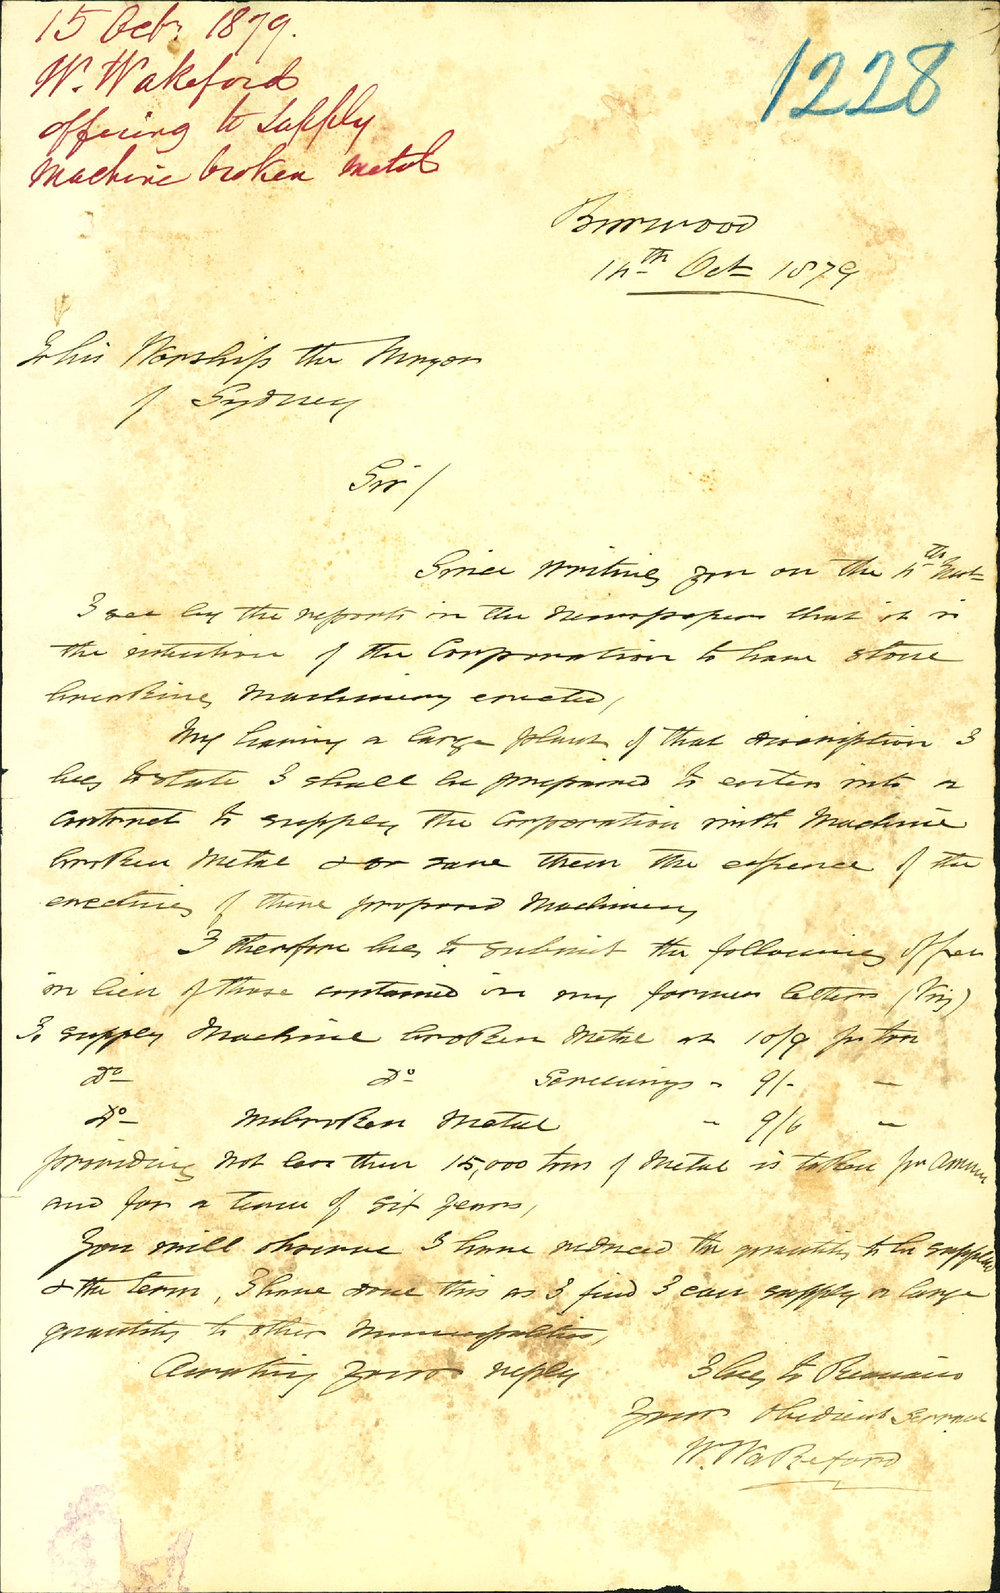 15 Octr 1879.
W. Wakeford
offering to supply
Machine broken metal
1228
Burwood
14th Oct 1879
To his Worship the Mayor
of Sydney
Sir/
Since writing you on the 4th Inst
I see by the reports in the Newspapers that it is
the intention of the Corporation to have stone
breaking Machinery erected,
My having a large plant of that discription I
beg to state I shall be prepared to enter into a
contract to supply the Corporation with Machine
broken Metal & save them the expence of the
erecting of there proposed Machinery
I therefore beg to submit the following offer
in lieu of those contained in my former letters (Viz)
To supply Machine broken Metal at 10/9 per ton
Do Do Screenings " 9/- "
Do Unbroken Metal " 9/6 "
providing not less then 15,000 tons of Metal is taken per Annum
and for a term of six years,
You will observe I have reduced the quantity to be supplied
& the term, I have done this as I find I can supply a large
quantity to other Municipalities,
Awaiting your reply
I beg to Remain
Your Obedient Servant
W. Wakeford